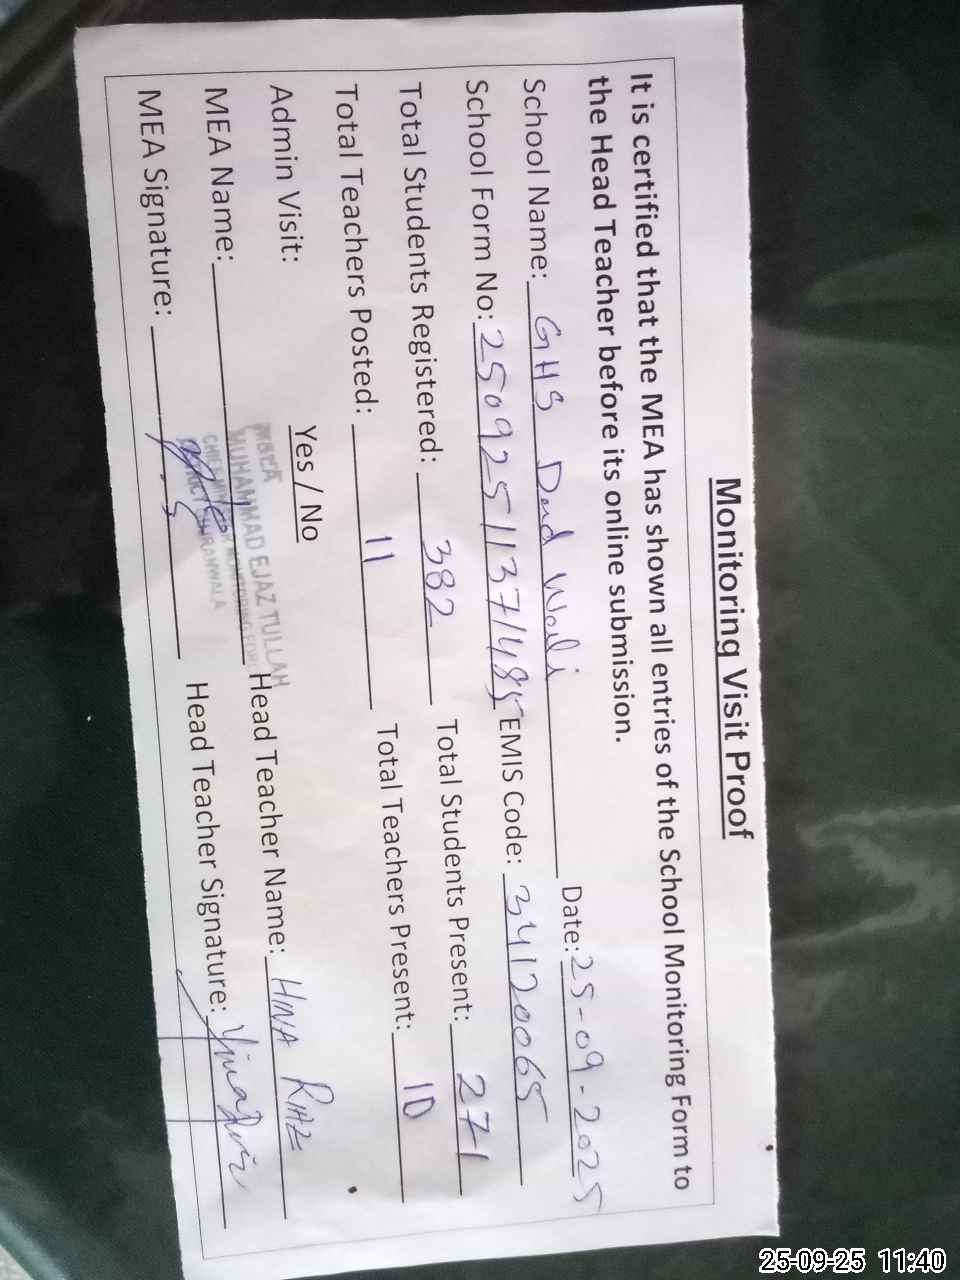 Monitoring Visit Proof
It is certified that the MEA has shown all entries of the School Monitoring Form to
the Head Teacher before its online submission.
School Name: GHS Dard Wali Date: 25-09-2025
School Form No: 25092511371485 EMIS Code: 34120065
Total Students Registered: 382 Total Students Present: 271
Total Teachers Posted: 11 Total Teachers Present: 10
Admin Visit: Yes / No
MEA Name: MUHAMMAD EJAZ TULLAH Head Teacher Name: HINA
MEA Signature: Head Teacher Signature:
25-09-25 11:40